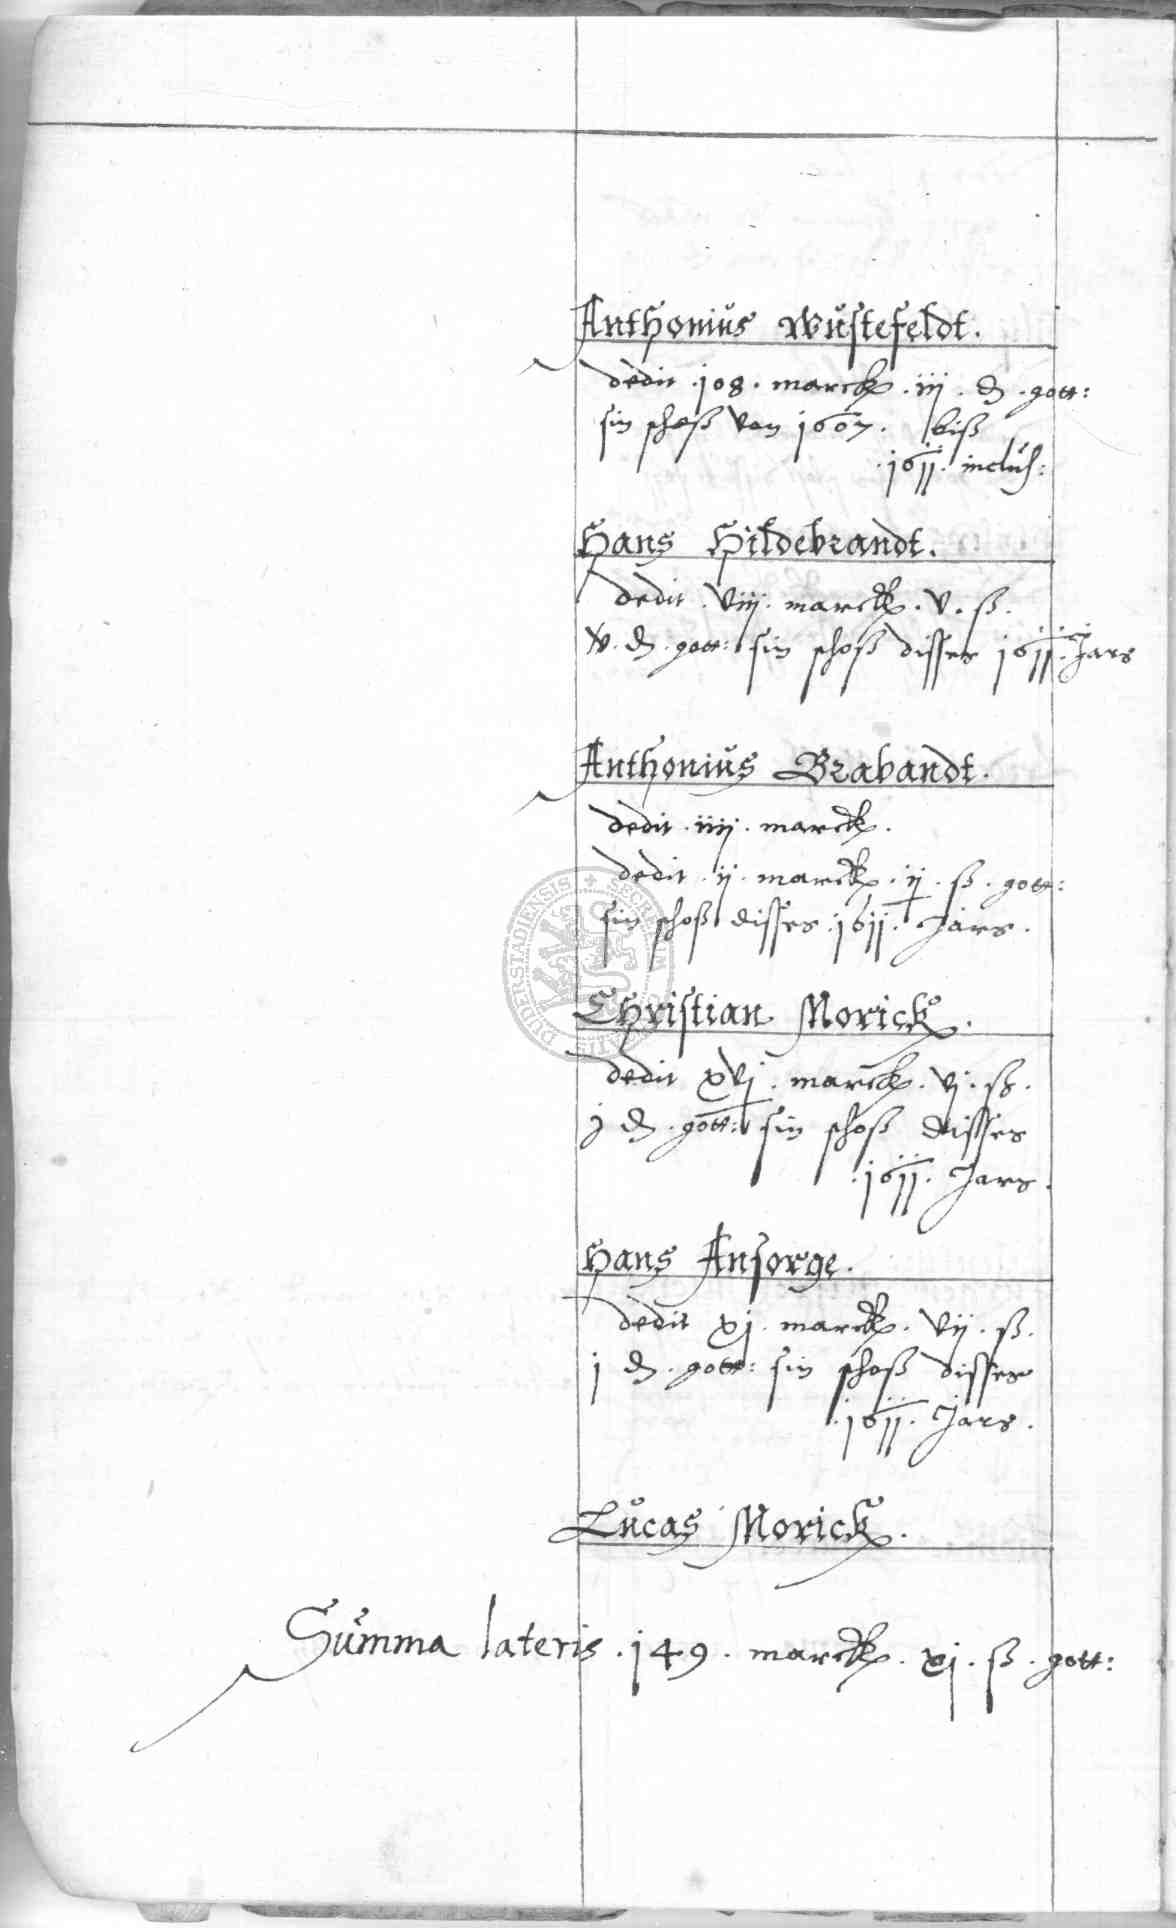 Anthonius Wüstefeldt.
dedit .108. marck .iij. d .gott:
sin schoß von 1607. biß
.1611. inclus:
Hans Hildebrandt.
dedit .viij. marck. v. ß.
v. d. gott: sin schoß disses 1611. Jars
Anthonius Brabandt.
dedit .iiij. marck.
dedit .ij. marck. ij. ß. gott:
sin schoß disses .1611. Jars.
SECRETUM CIVITATIS DUDERSTADIENSIS
Christian Morick.
dedit xvj. marck. vj. ß.
j d. gott: sin schoß disses
.1611. Jars.
Hans Ansorge.
dedit xj. marck. vij. ß.
j d. gott: sin schoß disses
.1611. Jars.
Lucas Morick.
Summa lateris .149. marck. xj. ß. gott: